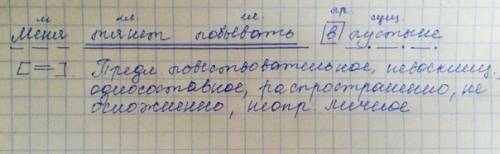 м. гл. гл. пр. сущ.
Меня тянет побывать в пустыне
[=]. Предл. повествовательное, невосклиц.
односоставное, распространенно, не
осложненно, неопр. личное